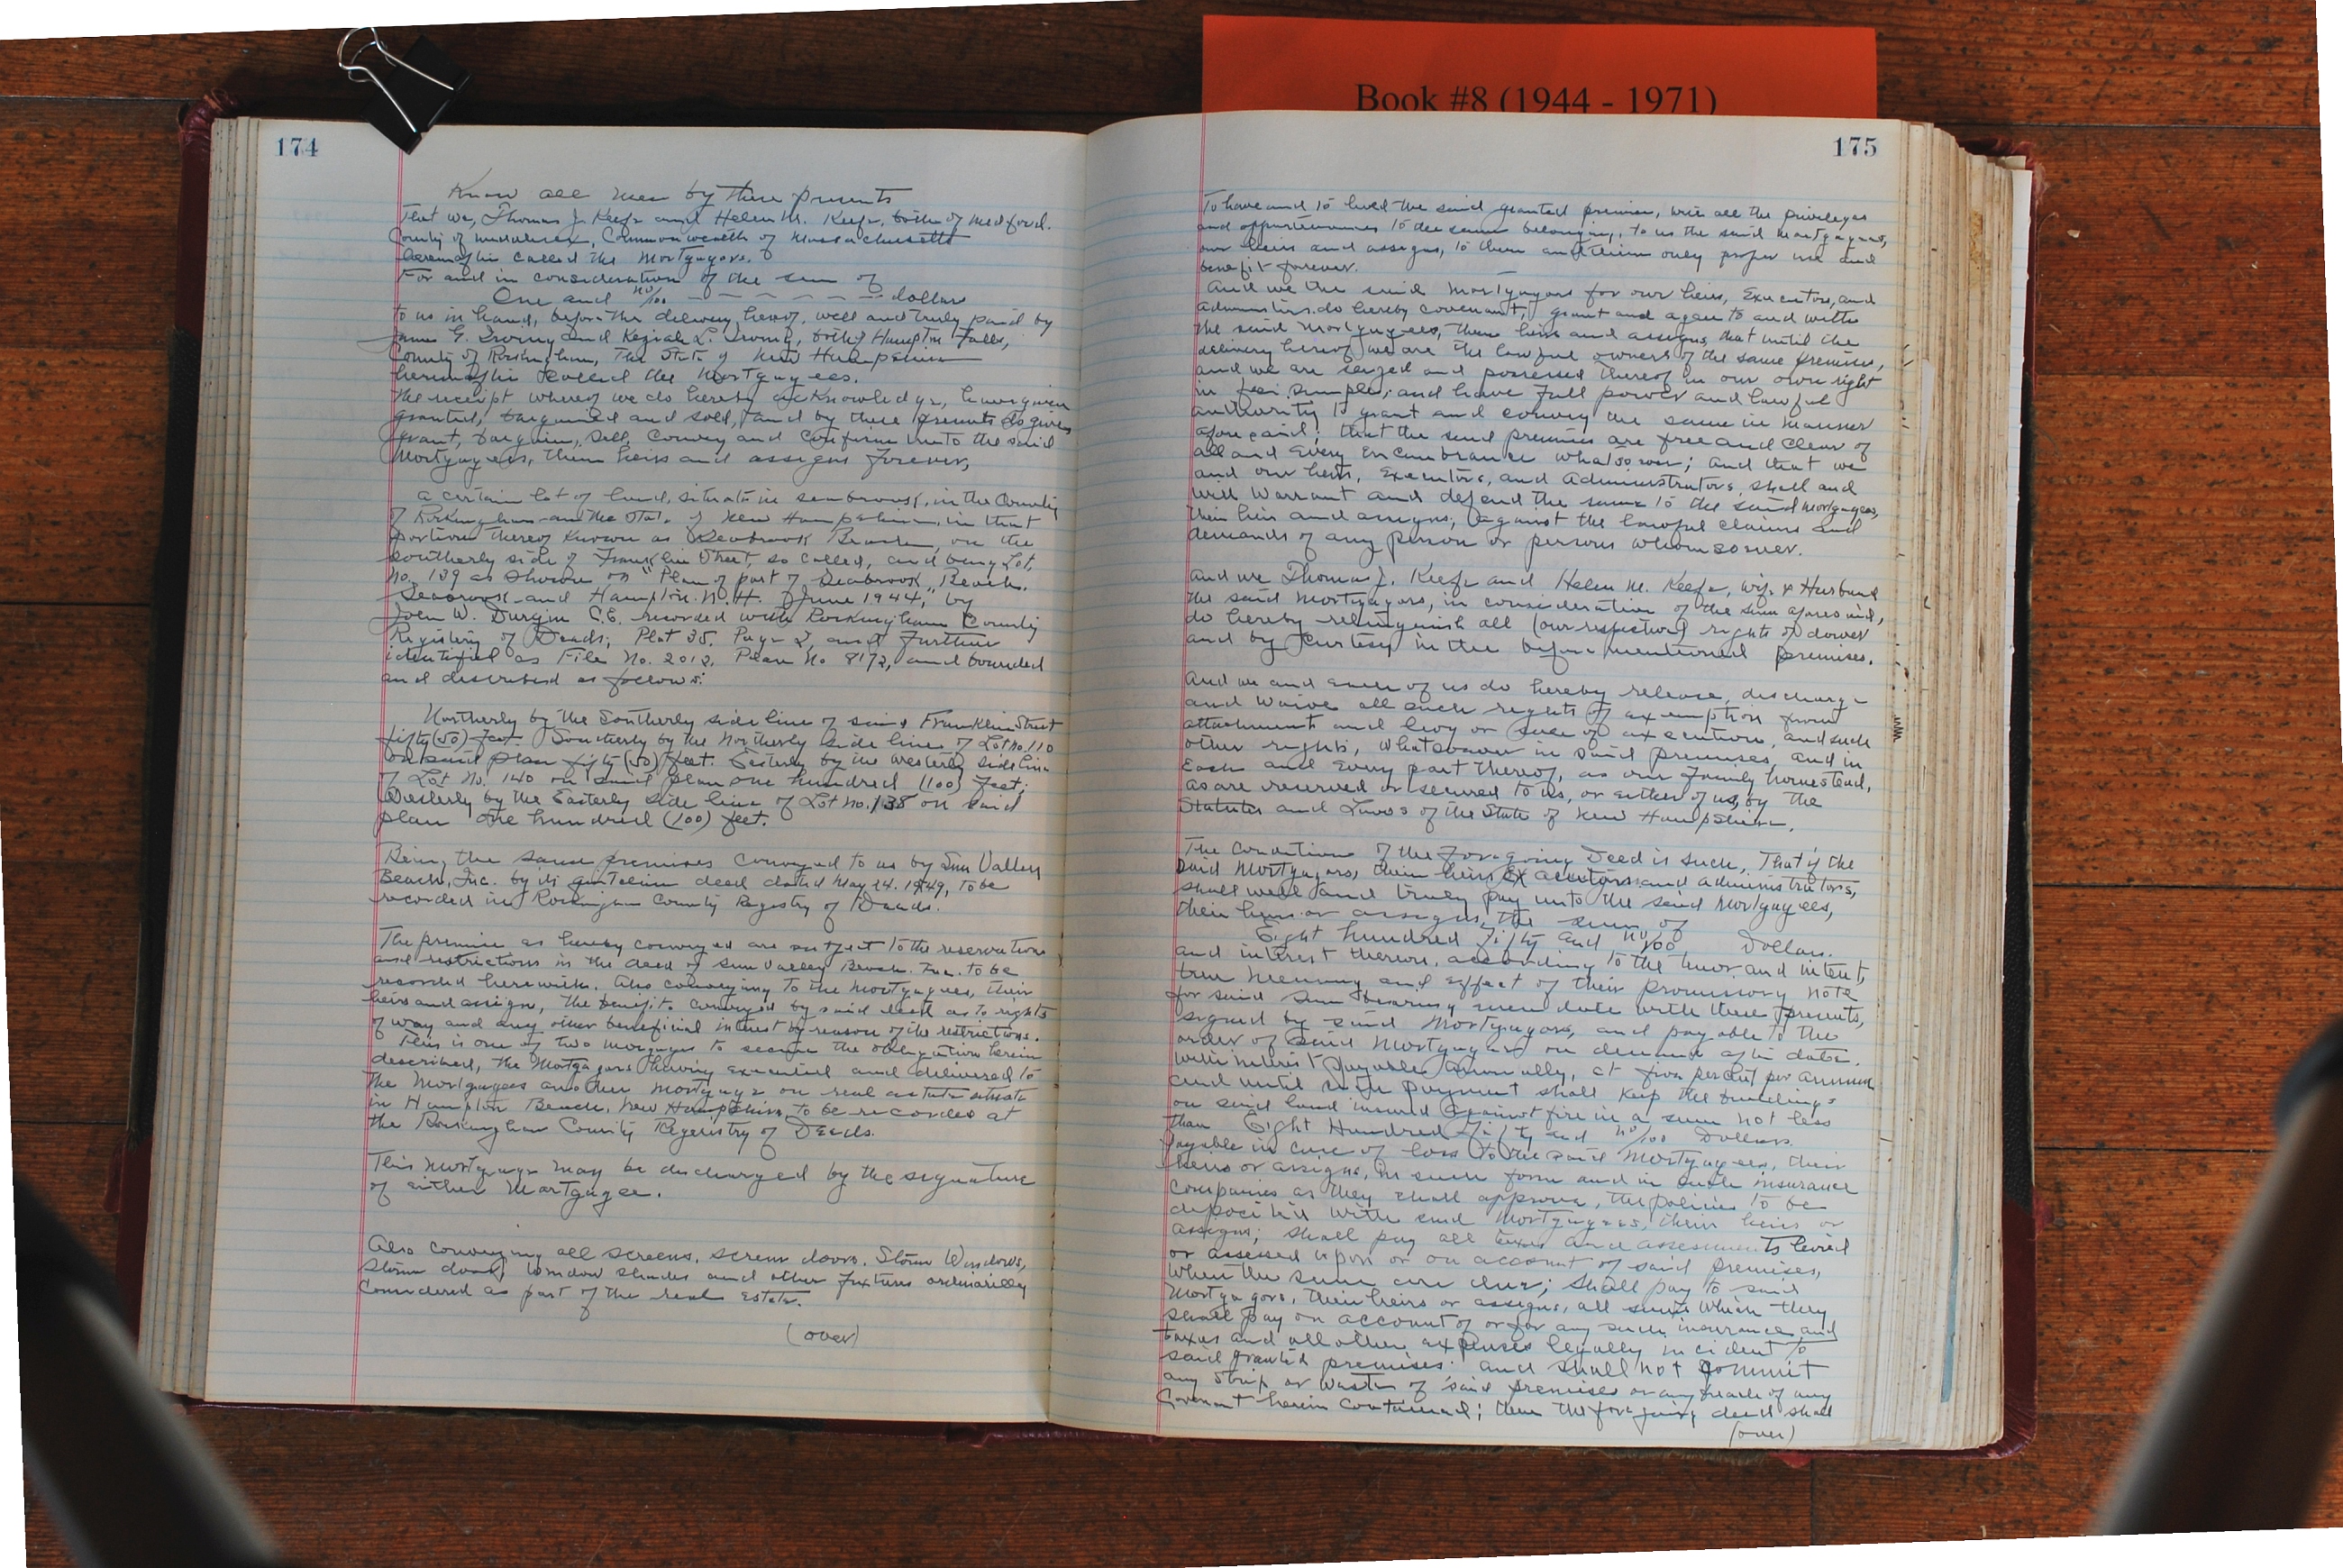 Book #8 (1944 - 1971)
174
Know all men by these presents
That we, Thomas J. Keefe and Helen M. Keefe, both of Medford.
County of Middlesex, Commonwealth of Massachusetts
hereinafter called the Mortgagors.
For and in consideration of the sum of
One and no/100 - - - - - - dollars
to us in hand, before the delivery hereof, well and truly paid by
James G. Irving and Keziah L. Irving, both of Hampton Falls,
County of Rockingham, The State of New Hampshire
hereinafter called the Mortgagees.
The receipt whereof we do hereby acknowledge, have given
granted, bargained and sold, and by these presents do give,
grant, bargain, sell, convey and confirm unto the said
Mortgagees, their heirs and assigns forever,
a certain lot of land, situate in Seabrook, in the County
of Rockingham and the State of New Hampshire, in that
portion thereof known as Seabrook Beach, on the
southerly side of Franklin Street, so called, and being Lot
No. 139 as shown on "Plan of part of Seabrook Beach.
Seabrook and Hampton. N.H. June 1944," by
John W. Durgin C.E. recorded with Rockingham County
Registery of Deeds; Plat 35. Page 2, and further
identified as File No. 2012. Plan No 8172, and bounded
and described as follows:
Northerly by the Southerly side line of said Franklin Street
fifty (50) feet. Southerly by the Northerly side line of Lot No. 110
on said plan fifty (50) feet. Easterly by the Westerly side line
of Lot No. 140 on said plan one hundred (100) feet;
Westerly by the Easterly side line of Lot No. 138 on said
plan one hundred (100) feet.
Being the same premises conveyed to us by Sun Valley
Beach, Inc. by its quitclaim deed dated May 24. 1949, to be
recorded in Rockingham County Registry of Deeds.
The premise as hereby conveyed are subject to the reservations
and restrictions in the deed of Sun Valley Beach. Inc. to be
recorded herewith. Also conveying to the Mortgagees, their
heirs and assigns, the benefits conveyed by said deed as to rights
of way and any other beneficial interest by reason of the restrictions.
This is one of two mortgages to secure the obligation herein
described, the Mortgagors having executed and delivered to
the Mortgagees another mortgage on real estate situate
in Hampton Beach, New Hampshire, to be recorded at
the Rockingham County Regeristry of Deeds.
This mortgage may be discharged by the signature
of either Mortgagee.
Also conveying all screens, screen doors, Storm Windows,
Storm doors, Window shades and other fixtures ordinarily
Considered as part of the real estate.
(over)
175
To have and to hold the said granted premises, with all the privileges
and appurtenances to the same belonging, to us the said Mortgagees,
our heirs and assigns, to them and their only proper use and
benefit forever.
And we the said Mortgagors for our heirs, Executors, and
administors, do hereby covenant, grant and agree to and with
the said Mortgagees, their heirs and assigns, that until the
delivery hereof we are the lawful owners of the same premises,
and we are seized and possessed thereof in our own right
in fee simple; and have full power and lawful
authority to grant and convey the same in manner
aforesaid; that the said premises are free and clear of
all and every Encumbrance whatsoever; and that we
and our heirs, Executors, and Administrators, shall and
will Warrant and defend the same to the said Mortgagees,
their heirs and assigns, against the lawful claims and
demands of any person or persons whomsoever.
And we Thomas J. Keefe and Helen M. Keefe, wife & Husband
the said Mortgagors, in consideration of the sum aforesaid,
do hereby relinquish all (our respective) rights of dower
and by Curtesy in the before mentioned premises.
And we and each of us do hereby release, discharge
and waive all such rights of exemption from
attachment and levy or sale of execution, and such
other rights, whatsoever in said premises, and in
Each and Every part thereof, as our family homestead,
as are reserved or secured to us, or either of us, by the
Statutes and Laws of the State of New Hampshire.
The Condition of the foregoing Deed is such, That if the
said Mortgagors, their heirs Executors and administrators,
shall well and truly pay unto the said Mortgagees,
their heirs or assigns, the sum of
Eight hundred fifty and no/100 Dollars.
and interest thereon, according to the tenor and intent,
true meaning and effect of their promissory note
for said sum bearing even date with these presents,
signed by said Mortgagors, and payable to the
order of said Mortgagees on demand after date.
with interest payable annually, at five percent per annum
and until such payment shall keep the buildings
on said land insured against fire in a sum not less
than Eight Hundred fifty and no/100 Dollars.
payable in case of loss to the said Mortgagees, their
heirs or assigns, in such form and in such insurance
companies as they shall approve, the policies to be
deposited with said Mortgagees, their heirs or
assigns; shall pay all taxes and assessments levied
or assessed upon or on account of said premises,
when the same are due; shall pay to said
Mortgagors, their heirs or assigns, all sums which they
shall pay on account of or for any such insurance and
taxes and all other expenses legally incident to
said granted premises: and shall not commit
any strip or waste of said premises or any breach of any
Covenant herein contained; then the foregoing deed shall
(over)